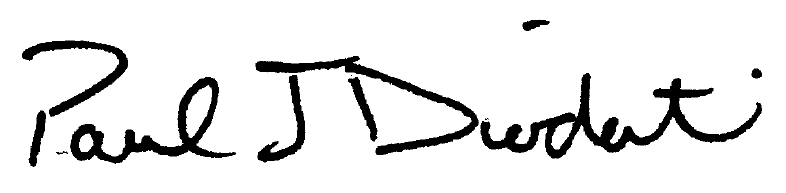 Paul J Diodati